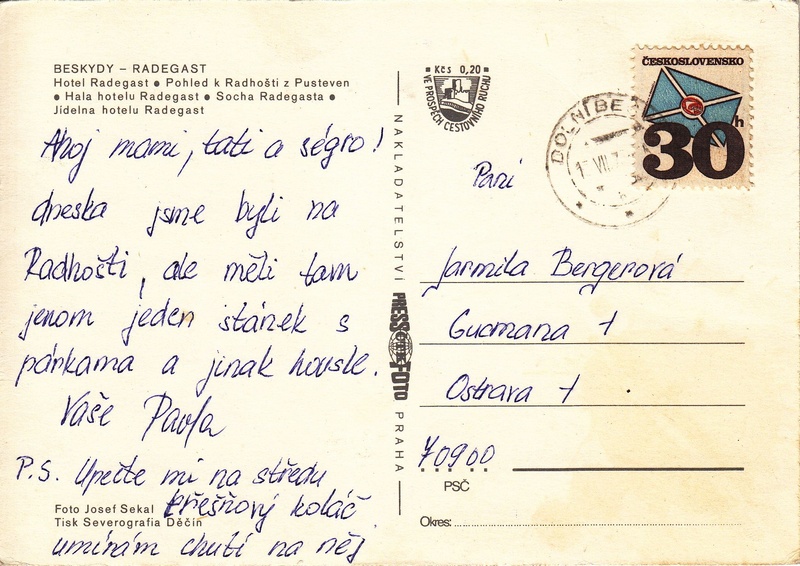 BESKYDY – RADEGAST
Hotel Radegast ● Pohled k Radhošti z Pusteven
● Hala hotelu Radegast ● Socha Radegasta ●
Jídelna hotelu Radegast
Ahoj mami, tati a ségro!
dneska jsme byli na
Radhošti, ale měli tam
jenom jeden stánek s
párkama a jinak housle.
Vaše Pavla
P.S. Upečte mi na středu
třešňový koláč
umírám chutí na něj
Foto Josef Sekal
Tisk Severografia Děčín
NAKLADATELSTVÍ
PRESSFOTO
PRAHA
Kčs 0,20
VE PROSPĚCH CESTOVNÍHO RUCHU
DOLNÍ BE
VII.
ČESKOSLOVENSKO
30h
Paní
Jarmila Bergerová
Gucmana 1
Ostrava 1
70900
PSČ
Okres: